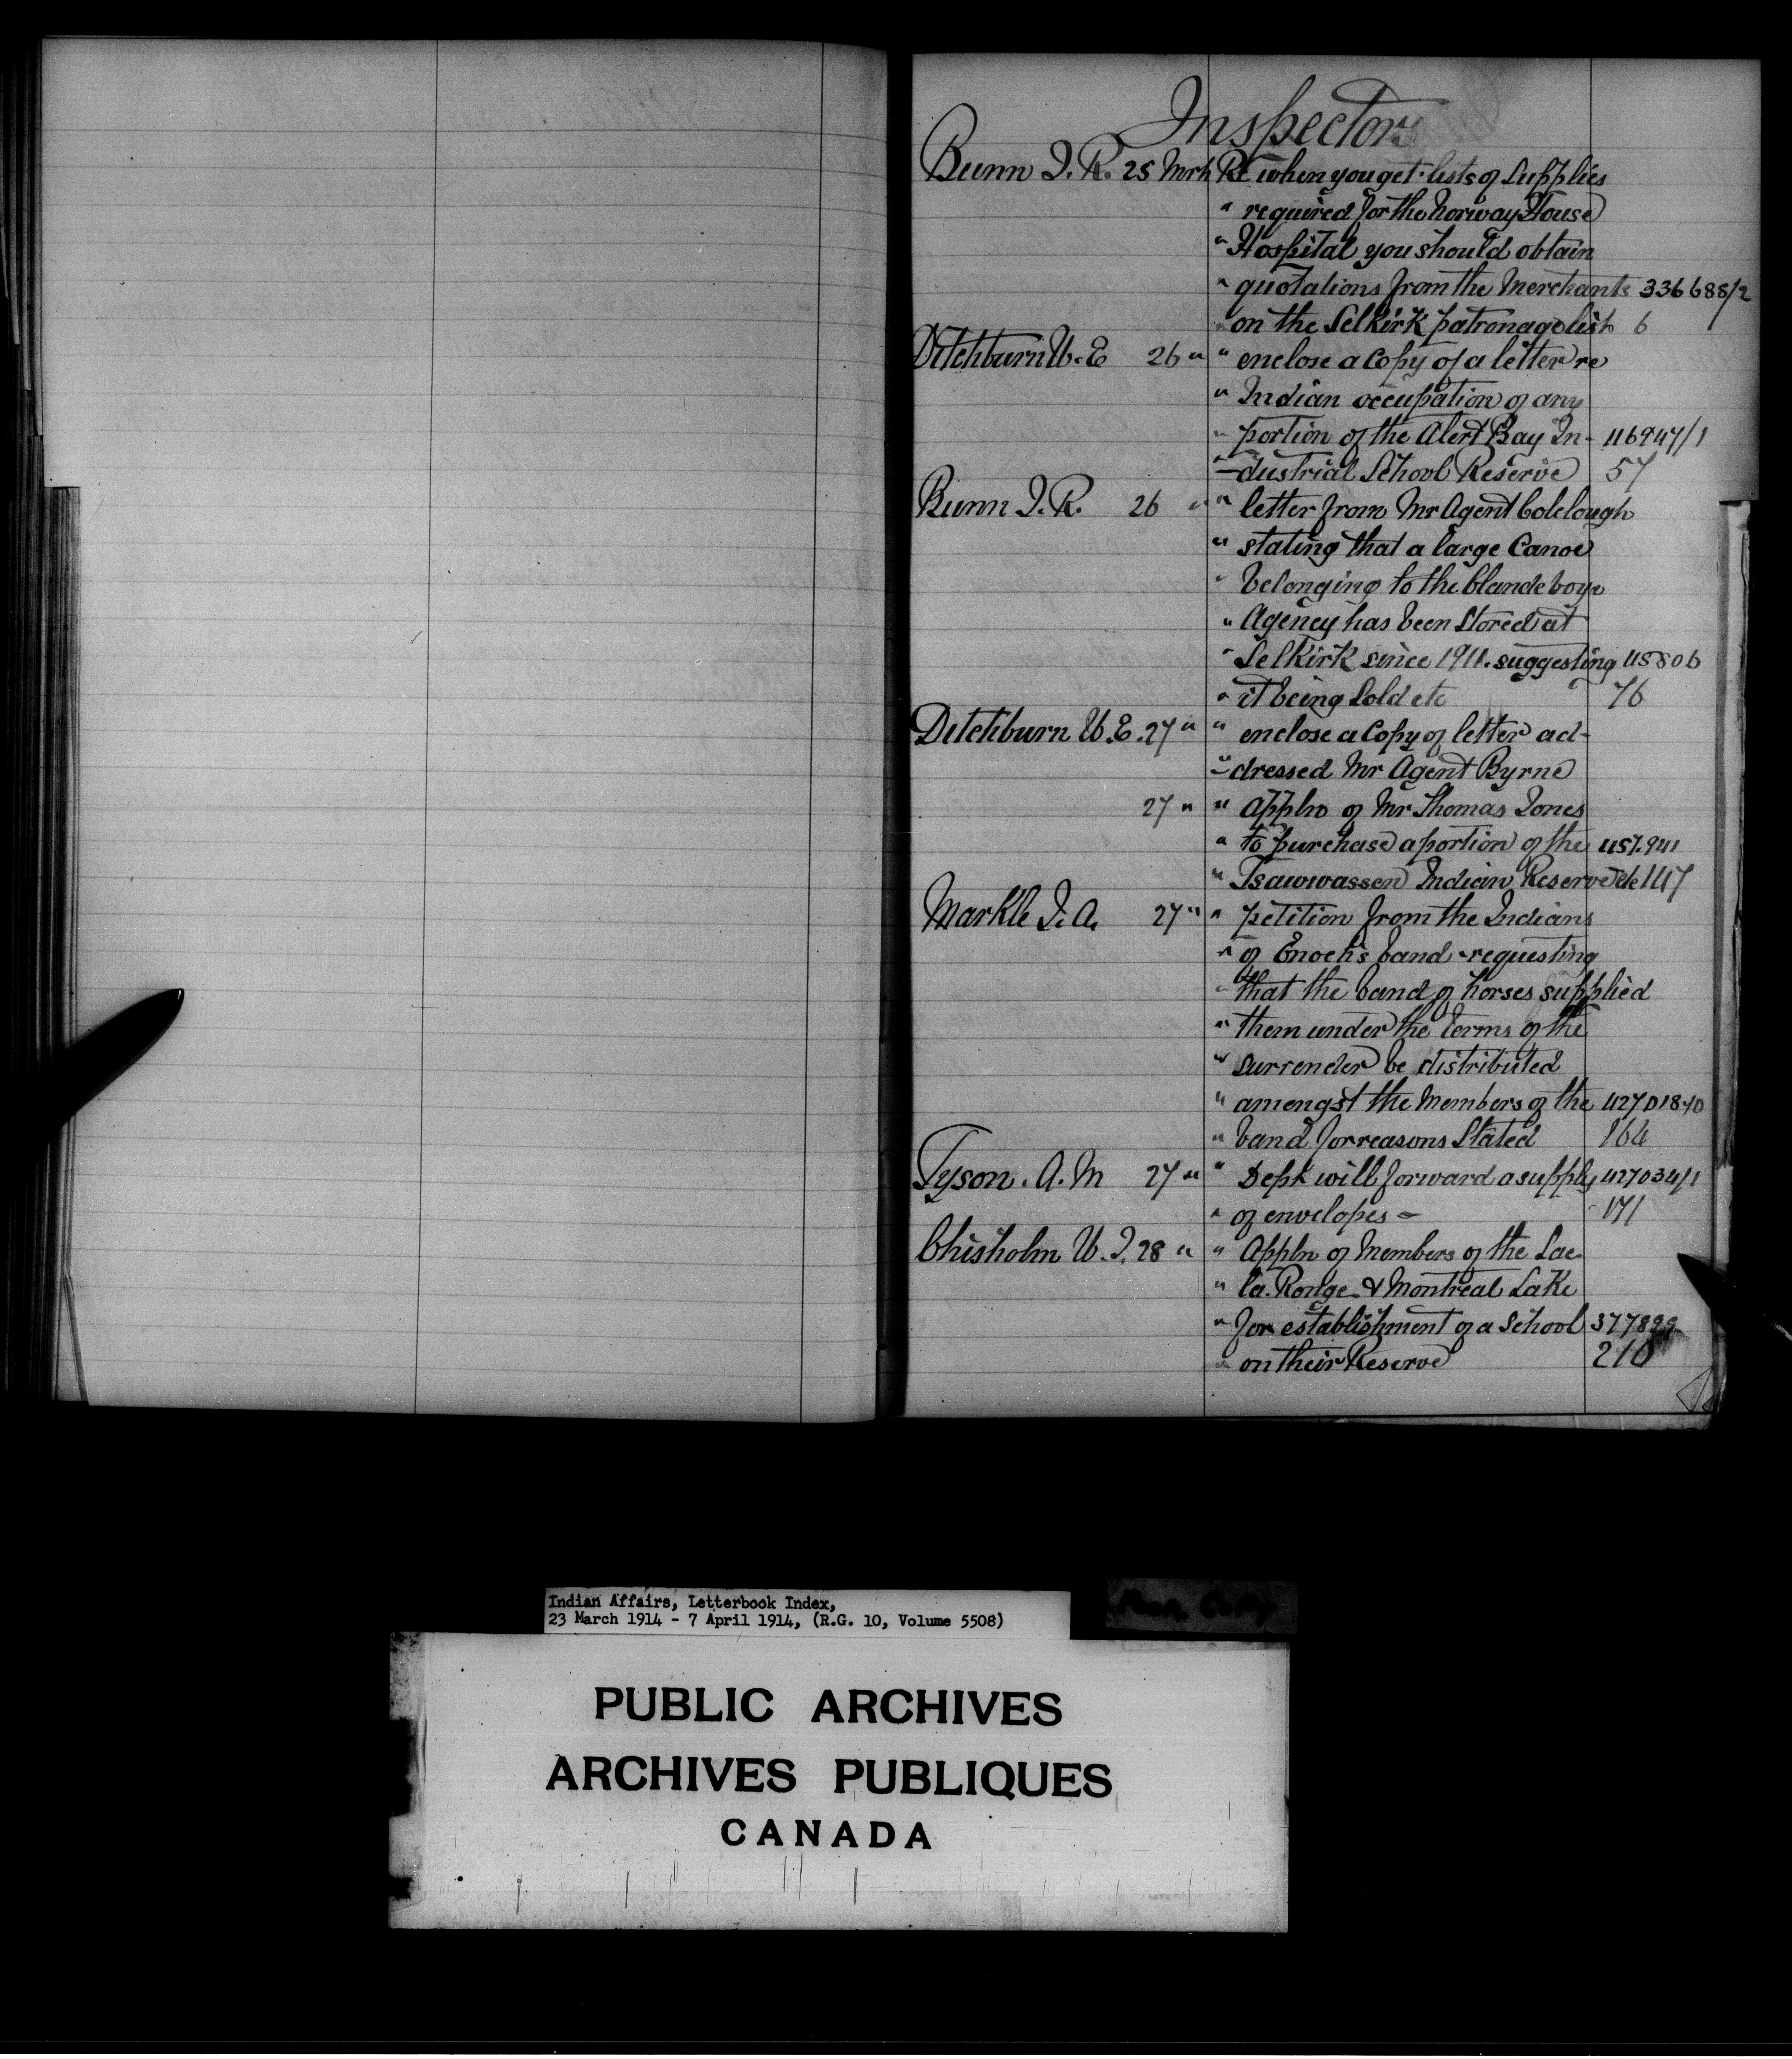 Inspectors
Bunn J. R. 25 Mrh Re when you get lists of Supplies
" required for the Norway House
" Hospital you should obtain
" quotations from the Merchants 336688/2
" on the Selkirk patronage list 6
Ditchburn W. E 26 " " enclose a Copy of a letter re
" Indian occupation of any
" portion of the Alert Bay In- 116947/1
" -dustrial School Reserve 57
Bunn J. R. 26 " " letter from Mr Agent Colclough
" stating that a large Canoe
" belonging to the Clandeboye
" Agency has been Stored at
" Selkirk since 1911. suggesting 115806
" it being Sold etc 76
Ditchburn W. E. 27 " " enclose a Copy of letter ad-
" -dressed Mr Agent Byrne
27 " " Appln of Mr Thomas Jones
" to purchase a portion of the 457.941
" Tsawwassen Indian Reserve etc 147
Markle J. A. 27 " " petition from the Indians
" of Enoch's band - requesting
" that the band of horses supplied
" them under the terms of the
" surrender be distributed
" amongst the Members of the
" band for reasons Stated 164
Tyson. A. M 27 " " Dept will forward a supply 427034/1
" of envelopes - 171
Chisholm W. J. 28 " " Appln of Members of the Lac
" la. Ronge & Montreal Lake
" for establishment of a School 377899
" on their Reserve 210
Indian Affairs, Letterbook Index,
23 March 1914 - 7 April 1914, (R.G. 10, Volume 5508)
PUBLIC ARCHIVES
ARCHIVES PUBLIQUES
CANADA